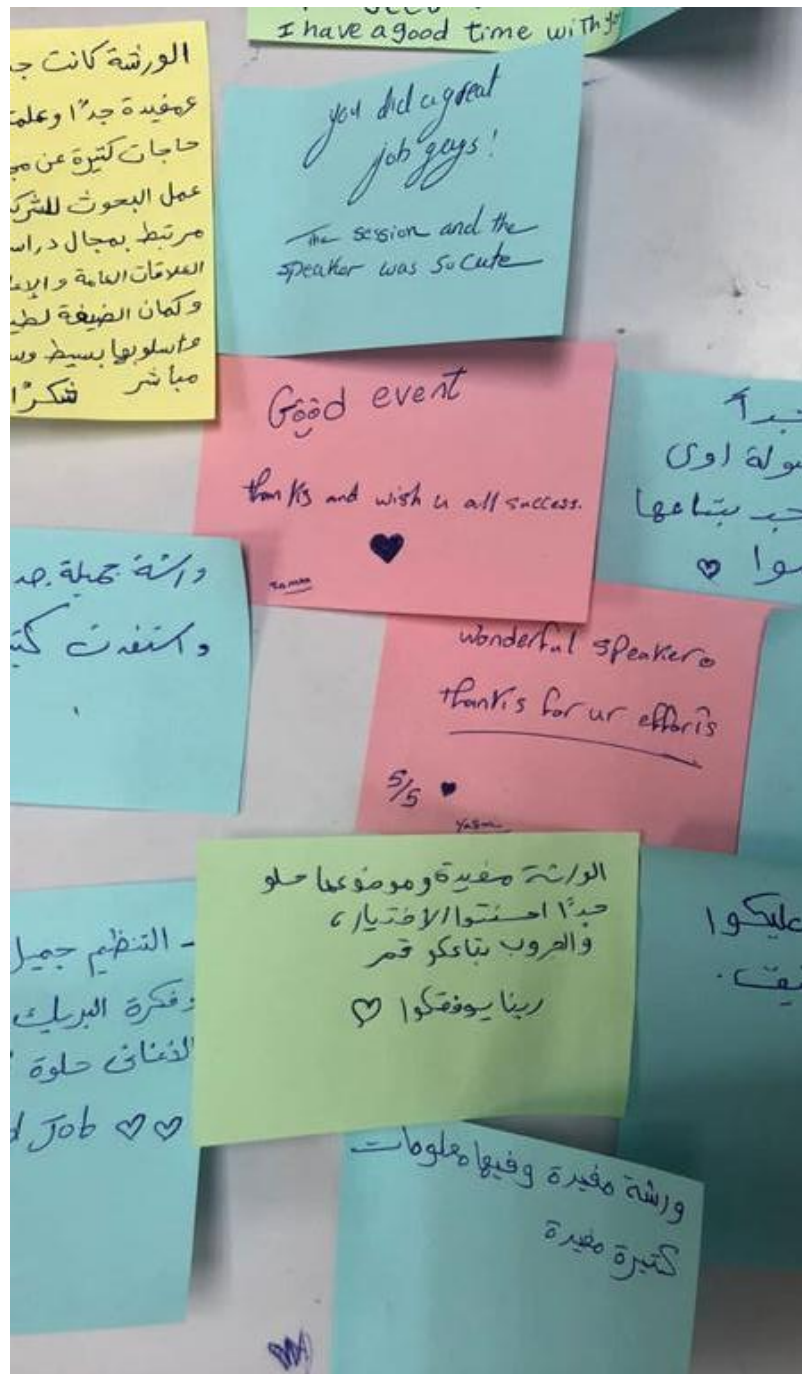 I have a good time with
الورشة كانت
مفيدة جدًا
حاجات كتيرة عن
عمل البحوث
مرتبط بمجال
العلاقات العامة
وكمان الضيفة
واسلوبها بسيط
مباشر شكرًا
you did a great
job guys!
The session and the
speaker was so cute
Good event
thanks and wish u all success.
جداً
اوى
بتاعها
ورشة جميلة
واستفدت
wonderful speaker
thanks for ur efforts
5/5
الورشة مفيدة وموضوعها حلو
جدًا احسنتوا الاختيار،
والجروب بتاعكو قمر
ربنا يوفقكوا
عليكوا
- التنظيم جميل
وفكرة البريك
الأغانى حلوة
Job
ورشة مفيدة وفيها معلومات
كتيرة مفيدة